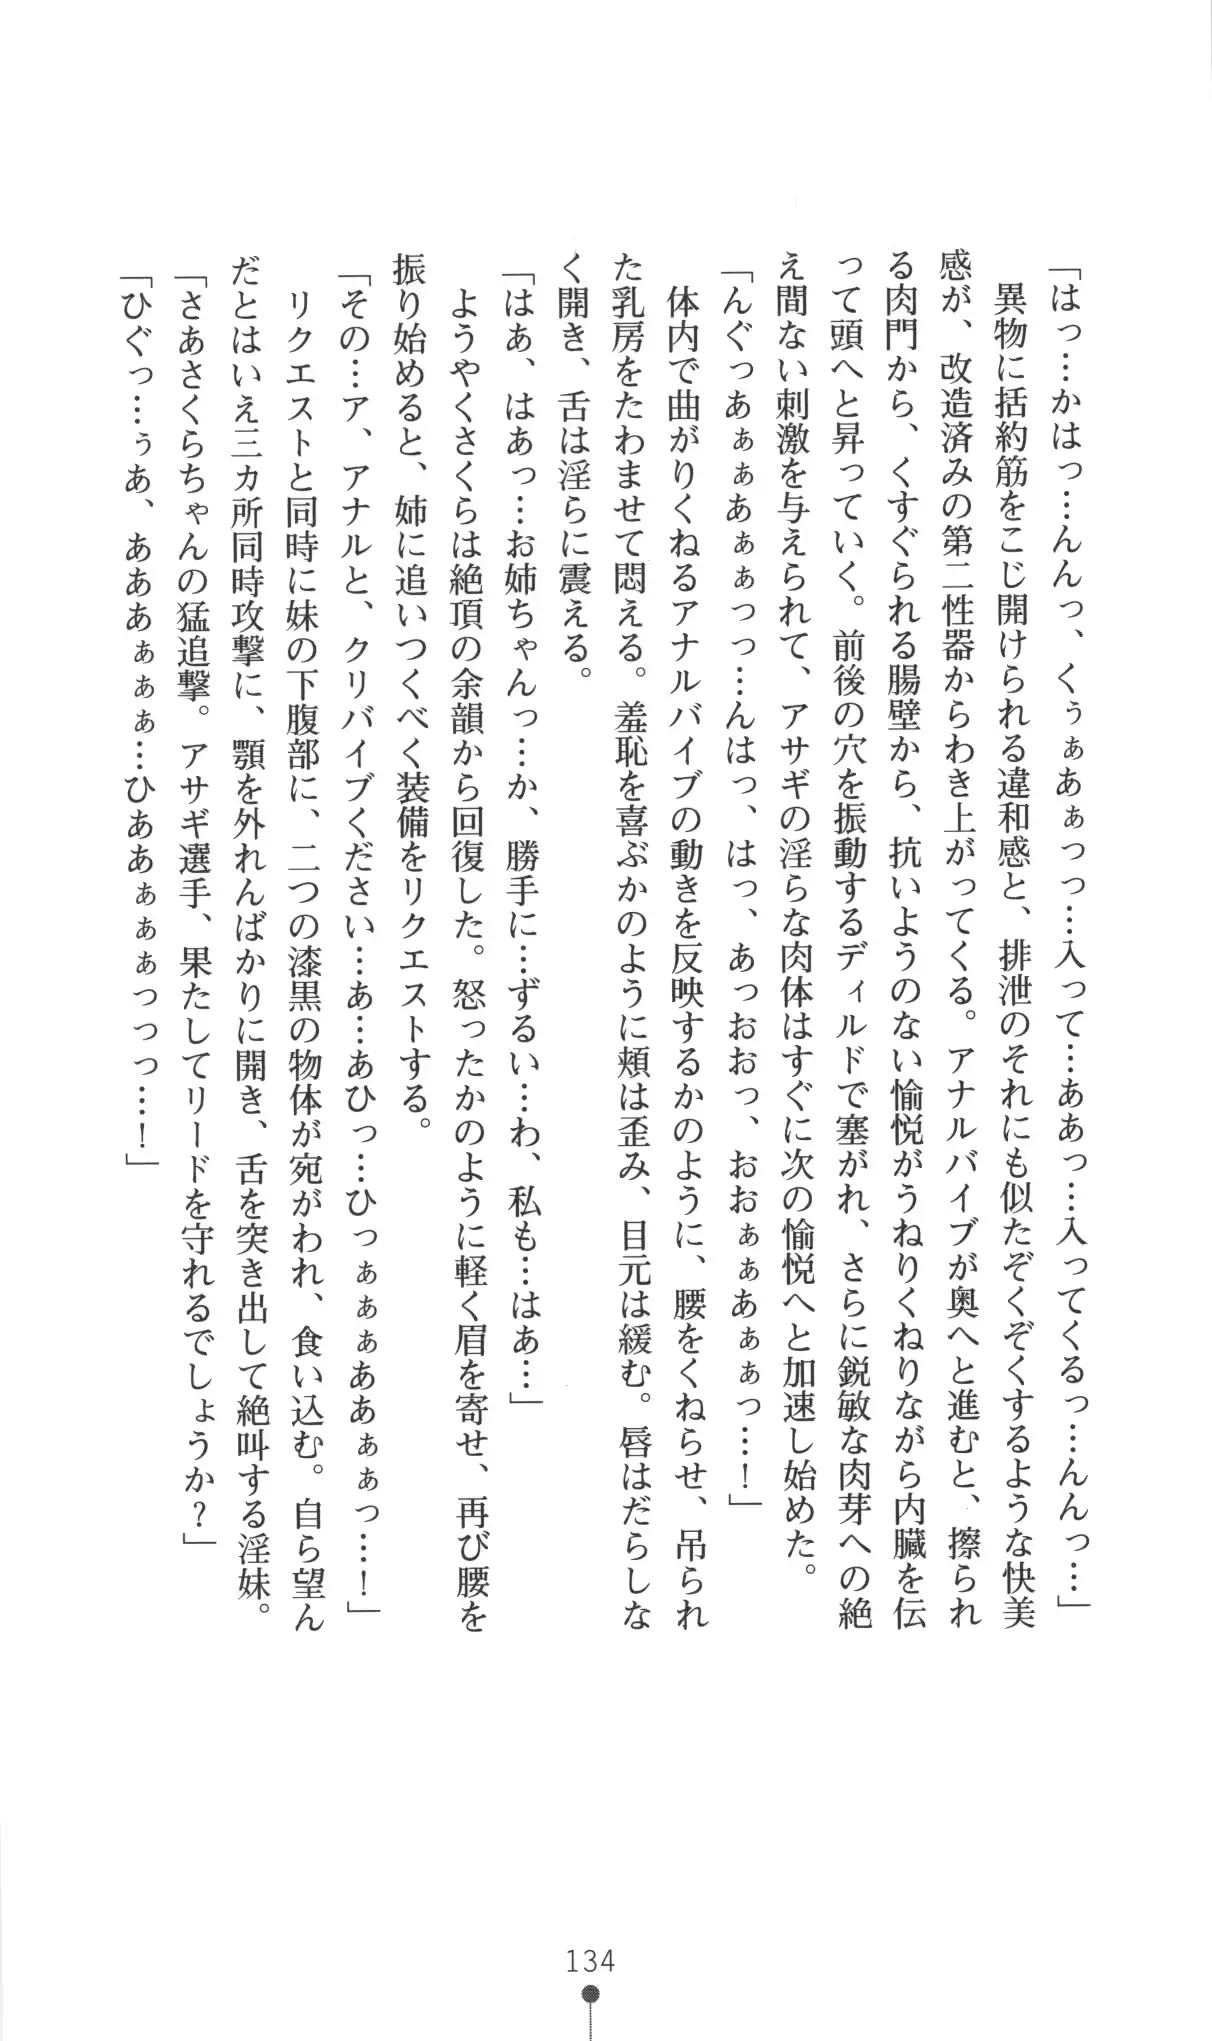 「はっ…かはっ…んんっ、くぅぁあぁっっ…入って…ああっ…入ってくるっ…んんっ…」
異物に括約筋をこじ開けられる違和感と、排泄のそれにも似たぞくぞくするような快美
感が、改造済みの第二性器からわき上がってくる。アナルバイブが奥へと進むと、擦られ
る肉門から、くすぐられる腸壁から、抗いようのない愉悦がうねりくねりながら内臓を伝
って頭へと昇っていく。前後の穴を振動するディルドで塞がれ、さらに鋭敏な肉芽への絶
え間ない刺激を与えられて、アサギの淫らな肉体はすぐに次の愉悦へと加速し始めた。
「んぐっあぁぁあぁぁっっ…んはっ、はっ、あっおおっ、おおぁぁあぁぁっ…！」
体内で曲がりくねるアナルバイブの動きを反映するかのように、腰をくねらせ、吊られ
た乳房をたわませて悶える。羞恥を喜ぶかのように頬は歪み、目元は緩む。唇はだらしな
く開き、舌は淫らに震える。
「はあ、はあっ…お姉ちゃんっ…か、勝手に…ずるい…わ、私も…はあ…」
ようやくさくらは絶頂の余韻から回復した。怒ったかのように軽く眉を寄せ、再び腰を
振り始めると、姉に追いつくべく装備をリクエストする。
「その…ア、アナルと、クリバイブください…あ…あひっ…ひっぁぁぁああぁぁっ…！」
リクエストと同時に妹の下腹部に、二つの漆黒の物体が宛がわれ、食い込む。自ら望ん
だとはいえ三カ所同時攻撃に、顎を外れんばかりに開き、舌を突き出して絶叫する淫妹。
「さあさくらちゃんの猛追撃。アサギ選手、果たしてリードを守れるでしょうか？」
「ひぐっ…ぅあ、あああぁぁぁ…ひああぁぁぁっっっ…！」
134